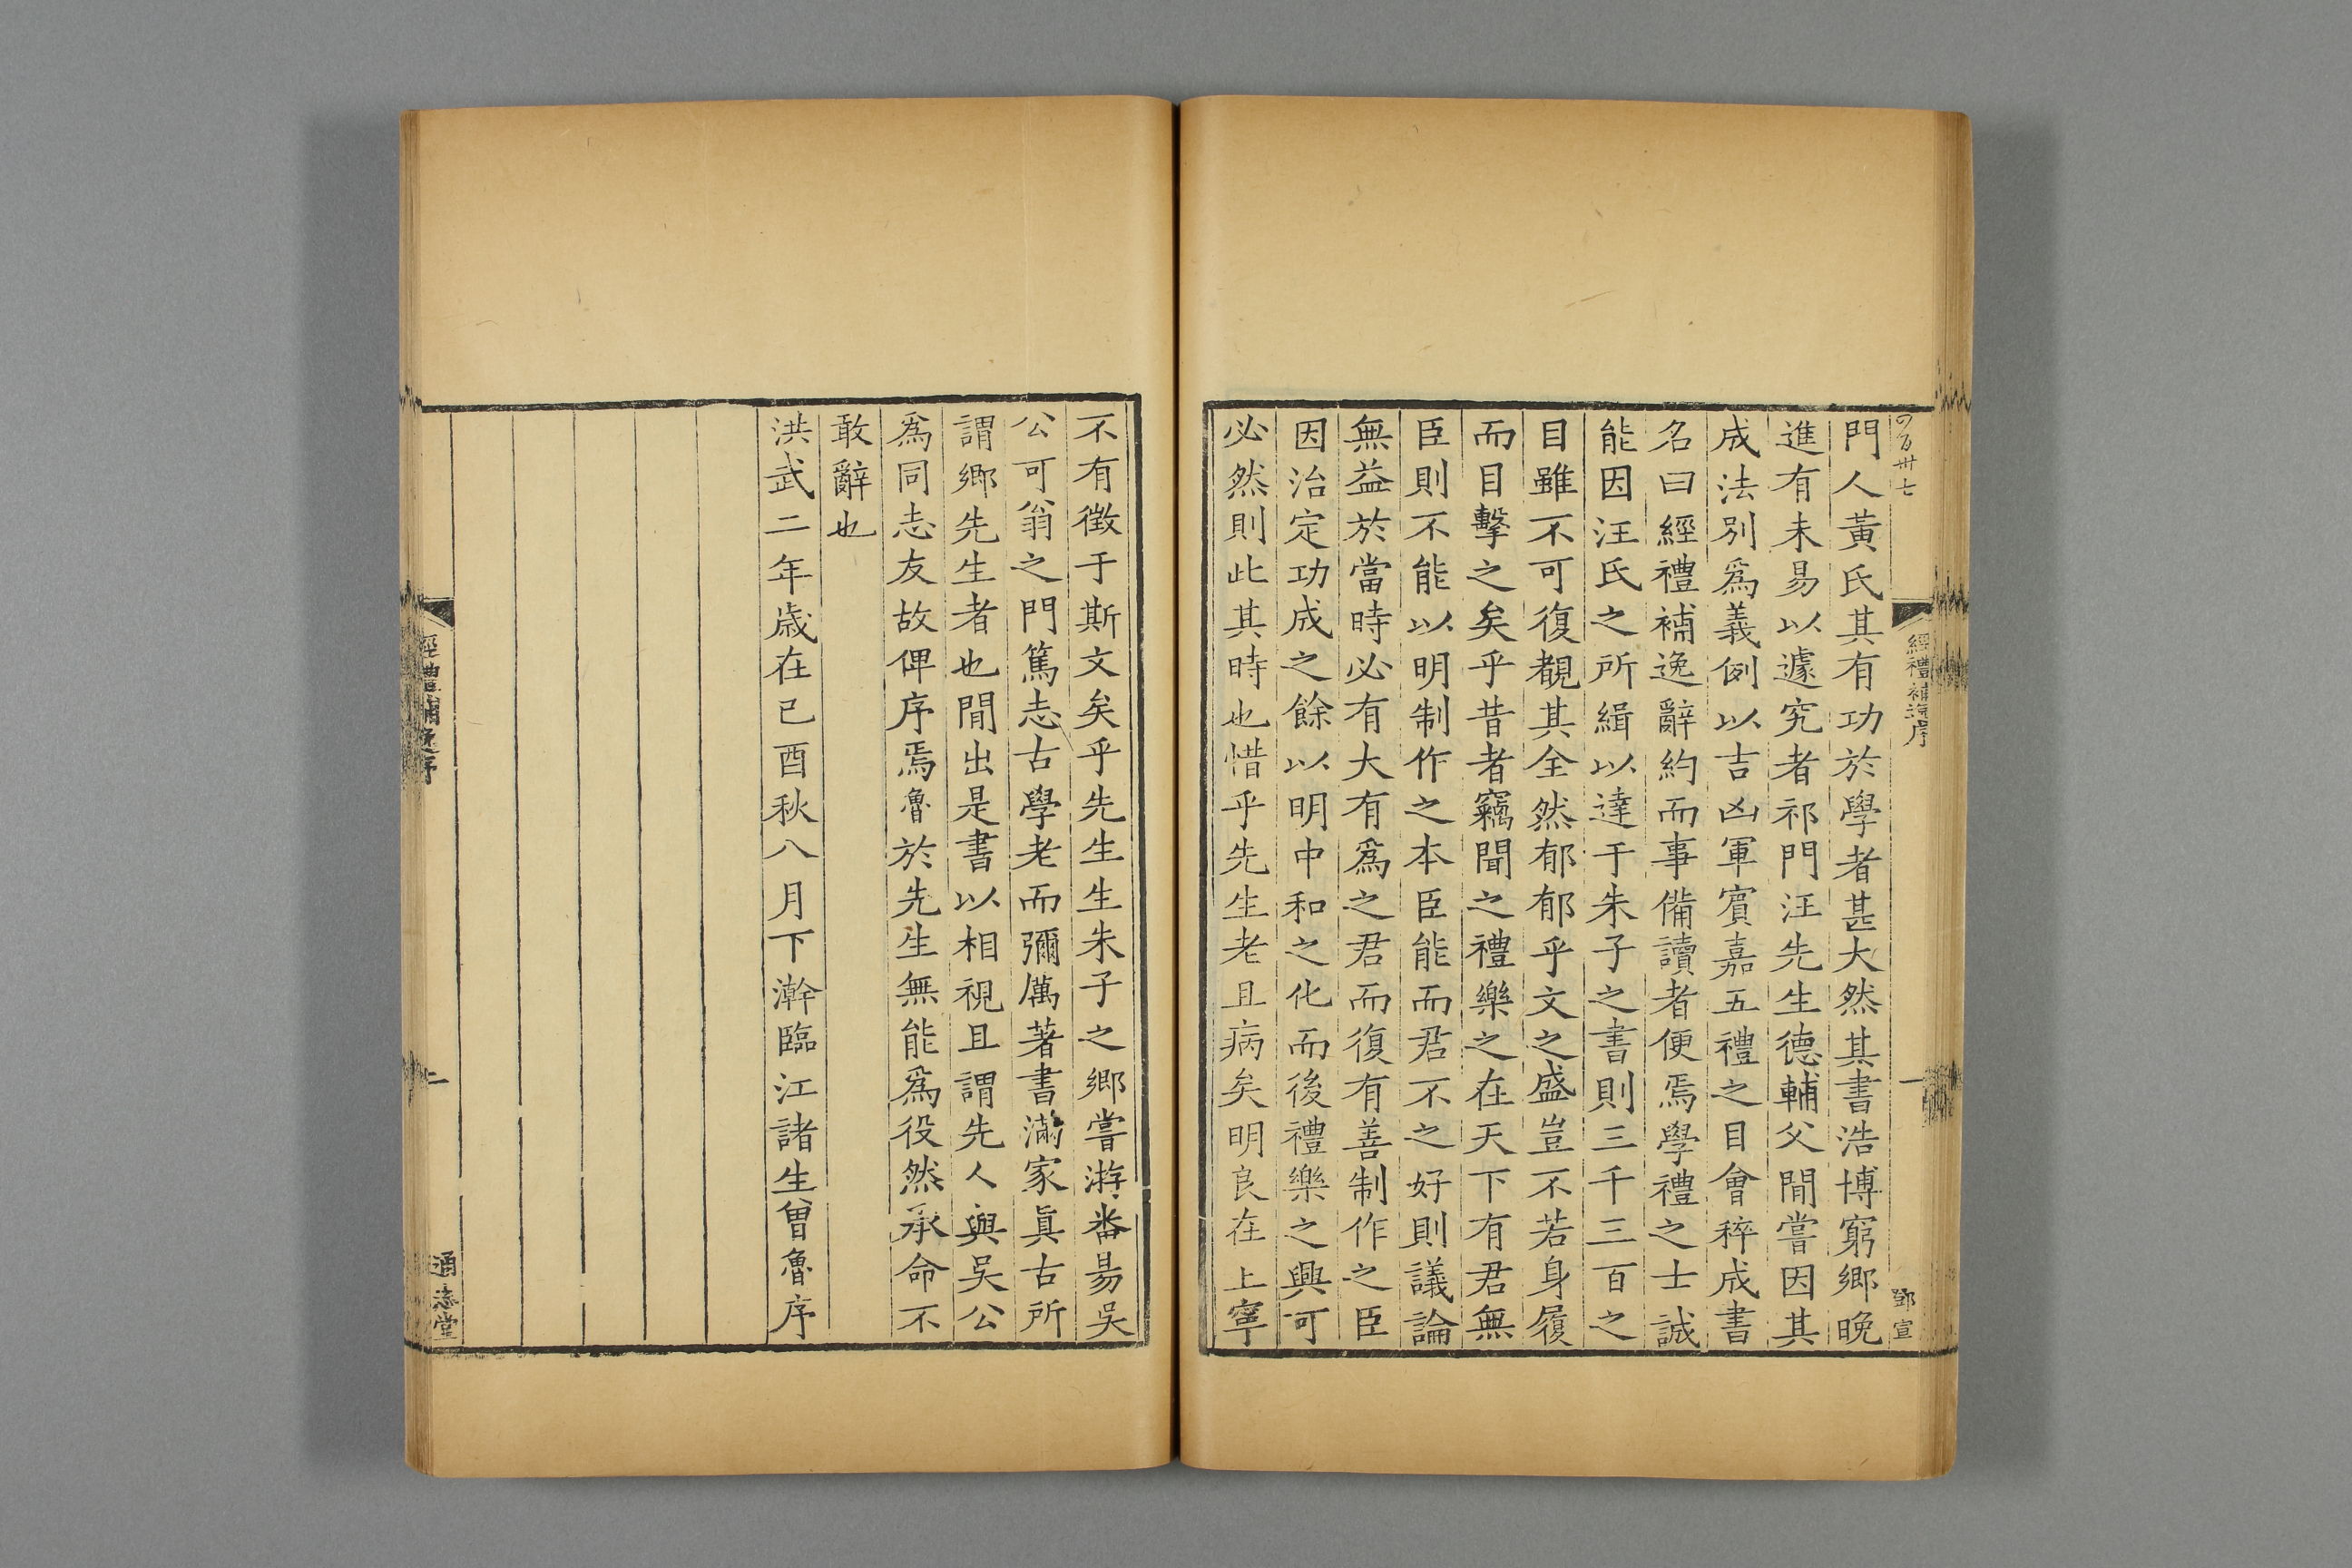 四百卅七
經禮補逸序
一
鄧宣
門人黃氏其有功於學者甚大然其書浩博窮鄉晚
進有未易以遽究者祁門汪先生德輔父間嘗因其
成法別爲義例以吉凶軍賓嘉五禮之目會稡成書
名曰經禮補逸辭約而事備讀者便焉學禮之士誠
能因汪氏之所緝以達于朱子之書則三千三百之
目雖不可復覩其全然郁郁乎文之盛豈不若身履
而目擊之矣乎昔者竊聞之禮樂之在天下有君無
臣則不能以明制作之本臣能而君不之好則議論
無益於當時必有大有爲之君而復有善制作之臣
因治定功成之餘以明中和之化而後禮樂之興可
必然則此其時也惜乎先生老且病矣明良在上寧
不有徵于斯文矣乎先生生朱子之鄉嘗游番昜吳
公可翁之門篤志古學老而彌厲著書滿家眞古所
謂鄉先生者也間出是書以相視且謂先人與吳公
爲同志友故俾序焉魯於先生無能爲役然承命不
敢辭也
洪武二年歲在己酉秋八月下澣臨江諸生曾魯序
經禮補逸序
二
通志堂